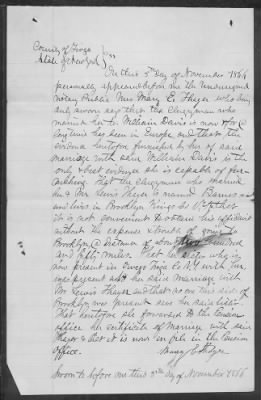 County of Tioga
State of New York } ss
On this 5th day of November 1886
personally appeared before me the undersigned
Notary Public Mrs Mary E. Thayer who being
duly sworn says that the Clergyman who
married her to William Davis is now & for a
long time has been in Europe and that the
evidence heretofore furnished by her of said
marriage with said William Davis is the
only & best evidence she is capable of
furnishing that the Clergyman who married
Lewis Thayer is named Barnes
and lives in Brooklyn Kings Co NY that
it is not convenient to obtain his affidavit
without the expense & trouble of going to
Brooklyn a distance of some two hundred
and fifty miles. That her sister who is
now present in Owego Tioga Co N.Y. with
her said Marriage with
Lewis Thayer and that no one this side of
Brooklyn was present
That heretofore she forwarded to the Pension
office the certificate of Marriage with said
Thayer & that it is now on file in the Pension
Office.
Mary E Thayer
Sworn to before me this 5th day of November 1886